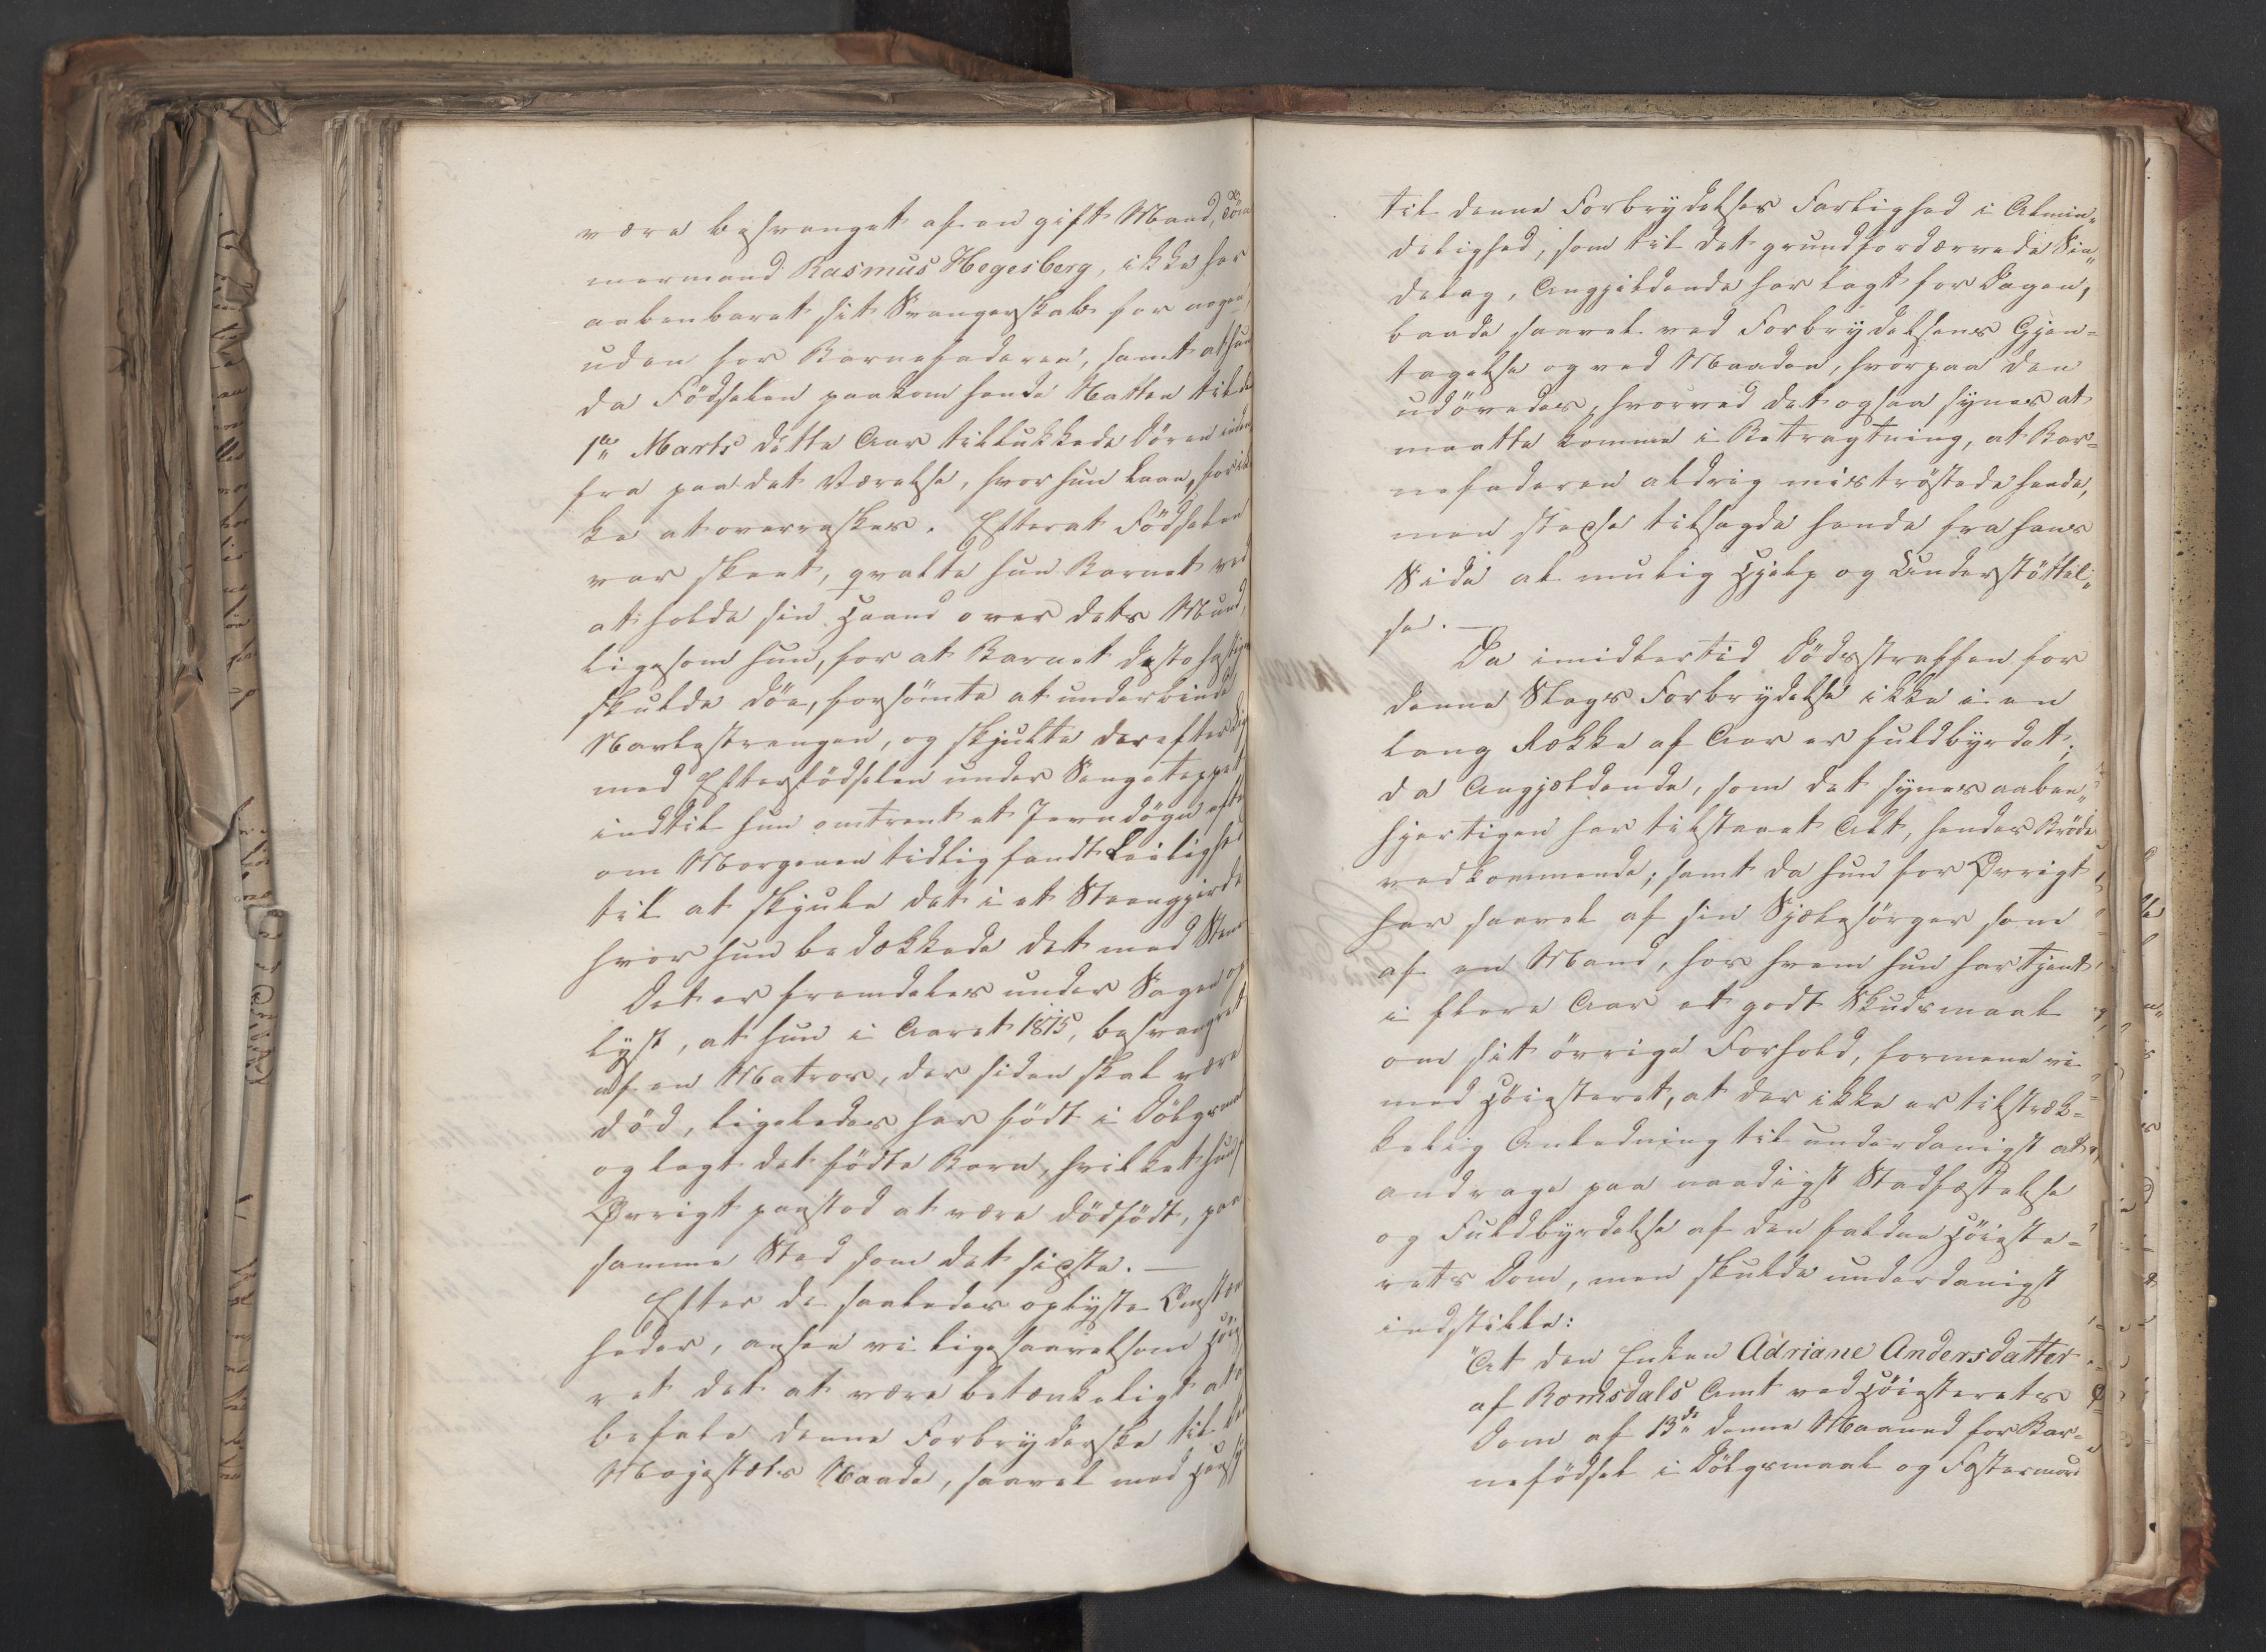 være besvangret af en gift Mand, Töm
mermand Rasmus Hegesberg, ikke har
aabenbaret sit Svangerskab for nogen
uden for Barnefaderen, samt at hun
da Födselen paakom hende Natten til den
1ste Marts dette Aar tillukkede Dören inden
fra paa det Værelse, hvor hun laae, for ik
ke at overraskes. Efterat Födselen
var skeet, qvalte hun Barnet ved
at holde sin Haand over dets Mund,
ligesom hun, for at Barnet desto hastigere
skulde döe, forsömte at underbinde
Navlestrengen, og skjulte derefter Lig
med Efterfödselen under Sengeteppet
indtil hun omtrent et Jevndögn efter
om Morgenen tidlig fandt Leilighed
til at skjule det i et Steengjerde
hvor hun bedækkede det med Stene
Det er fremdeles under Sagen op
lyst, at hun i Aaret 1815, besvangret
af en Matros, der siden skal være
död, ligeledes har födt i Dölgsmaal
og lagt det födte Barn, hvilket hun
Øvrigt paastod at være dödfödt, paa
samme Sted som det sidste. —
Efter de saaledes oplyste Omstæn
heder, ansee vi ligesaavelsom Höieste
ret det at være betænkeligt at
befale denne Forbryderske til Deres
Majestæts Naade, saavel med Hensyn
til denne Forbrydelses Farlighed i Almin„
delighed, som til det grundfordærvede Sin„
delag, Angjeldende har lagt for Dagen,
baade saavel ved Forbrydelsens Gjen-
tagelse og ved Maaden, hvorpaa den
udövedes, hvorved det ogsaa synes at
maatte komme i Betragtning, at Bar-
nefaderen aldrig miströstede hende,
men stedse tilsagde hende fra hans
Side al mulig Hjelp og Understöttel„
se. —
Da imidlertid Dödsstraffen for
denne Slags Forbrydelse ikke i en
lang Række af Aar er fuldbyrdet;
da Angjeldende, som det synes aaben„
hjertigen har tilstaaet Alt, hendes Bröde
vedkommende; samt da hun for Øvrigt
har saavel af sin Sjælesörger som
af en Mand, hos hvem hun har tjent
i flere Aar et godt Skudsmaal
om sit övrige Forhold, formene vi
med Höiesteret, at der ikke er tilstræk-
kelig Anledning til underdanigst at
andrage paa naadigst Stadfæstelse
og Fuldbyrdelse af den faldne Höieste-
rets Dom, men skulde underdanigst
indstille:
"At den Enken Adriane Andersdatter
af Romsdals Amt ved Höiesterets
Dom af 13de denne Maaned for Bar-
nefödsel i Dölgsmaal og Fostermord